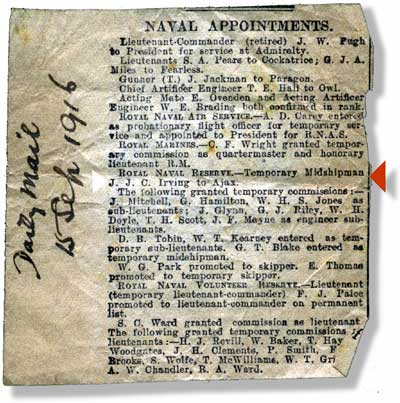 NAVAL APPOINTMENTS.
Lieutenant-Commander (retired) J. W. Pugh
to President for service at Admiralty.
Lieutenants S. A. Pears to Cockatrice; G. J. A.
Miles to Fearless.
Gunner (T.) J. Jackman to Paragon.
Chief Artificer Engineer T. E. Hall to Owl.
Acting Mate E. Ovenden and Acting Artificer
Engineer W. E. Brading both confirmed in rank.
ROYAL NAVAL AIR SERVICE.—A. D. Carey entered
as probationary flight officer for temporary ser-
vice and appointed to President for R.N.A.S.
ROYAL MARINES.—C. F. Wright granted tempor-
ary commission as quartermaster and honorary
lieutenant R.M.
ROYAL NAVAL RESERVE.—Temporary Midshipman
J. J. C. Irving to Ajax.
The following granted temporary commissions:—
J. Mitchell, G. Hamilton, W. H. S. Jones as
sub-lieutenants; J. Glynn, G. J. Riley, W. H.
Doyle, T. H. Scott, J. F. Moyne as engineer sub-
lieutenants.
D. B. Tobin, W. T. Kearney entered as tem-
porary sub-lieutenants. G. T. Blake entered as
temporary midshipman.
W. G. Park promoted to skipper. E. Thomas
promoted to temporary skipper.
ROYAL NAVAL VOLUNTEER RESERVE.—Lieutenant
(temporary lieutenant-commander) F. J. Paice
promoted to lieutenant-commander on permanent
list.
S. C. Ward granted commission as lieutenant
The following granted temporary commissions
lieutenants:—H. J. Revill, W. Baker, T. Hay
Woodgates, J. H. Clements, P. Smith, F
Brooks, S. Wolfe, T. McWilliams, W. T. Gri
A. W. Chandler, R. A. Ward.
Daily Mail
15 Sep 1916